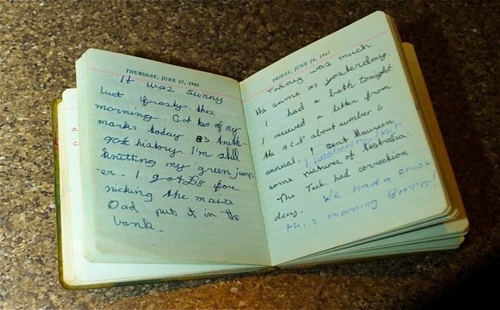 THURSDAY, JUNE 27, 1963
It was sunny
but frosty this
morning. Got two of my
marks today 83 Arith-
history I'm still
knitting my green jump-
er. I got £8 for
picking the maize
Dad put it in the
bank.
FRIDAY, JUNE 28, 1963
Today was much
the same as yesterday.
I had a bath tonight
I received a letter from
the about number 6
annual. I sent Maureen
some pictures of Australia
The Tech had correction
day. We had a frost
this morning Brrr!